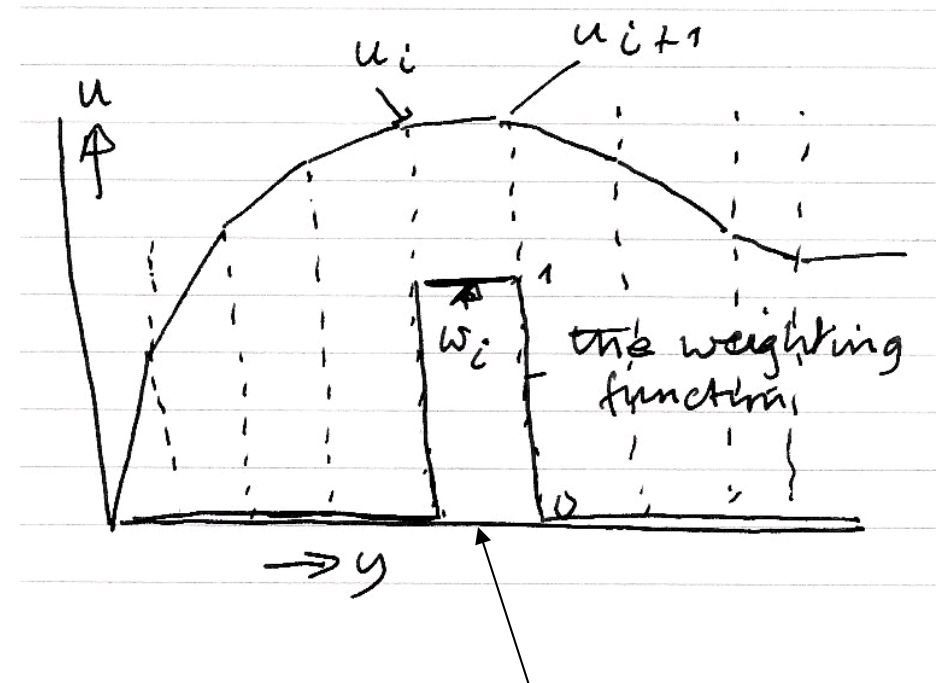 u i
u i+1
u
1
w i
the weighting
function
0
→ y